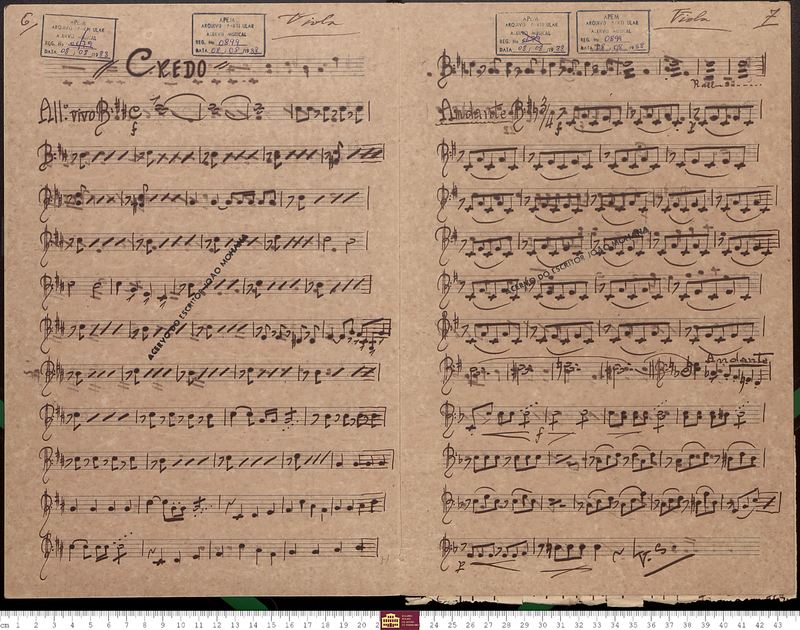 6
APEM
ARQUIVO PARTICULAR
ACERVO MUSICAL
REG. No
DATA 08, 08, 1988
APEM
ARQUIVO PARTICULAR
ACERVO MUSICAL
REG. No 0899
DATA 08, 08, 1988
Viola
CREDO
All: vivo
f
ACERVO DO ESCRITOR JOÃO MOHANA
APEM
ARQUIVO PARTICULAR
ACERVO MUSICAL
REG. No
DATA 08, 08, 1988
APEM
ARQUIVO PARTICULAR
ACERVO MUSICAL
REG. No 0899
DATA 08, 08, 1988
Viola
7
Rall
Andante
3/4
f
ACERVO DO ESCRITOR JOÃO MOHANA
Andante
f
p
V. S.
cm 1 2 3 4 5 6 7 8 9 10 11 12 13 14 15 16 17 18 19 20 24 25 26 27 28 29 30 31 32 33 34 35 36 37 38 39 40 41 42 43